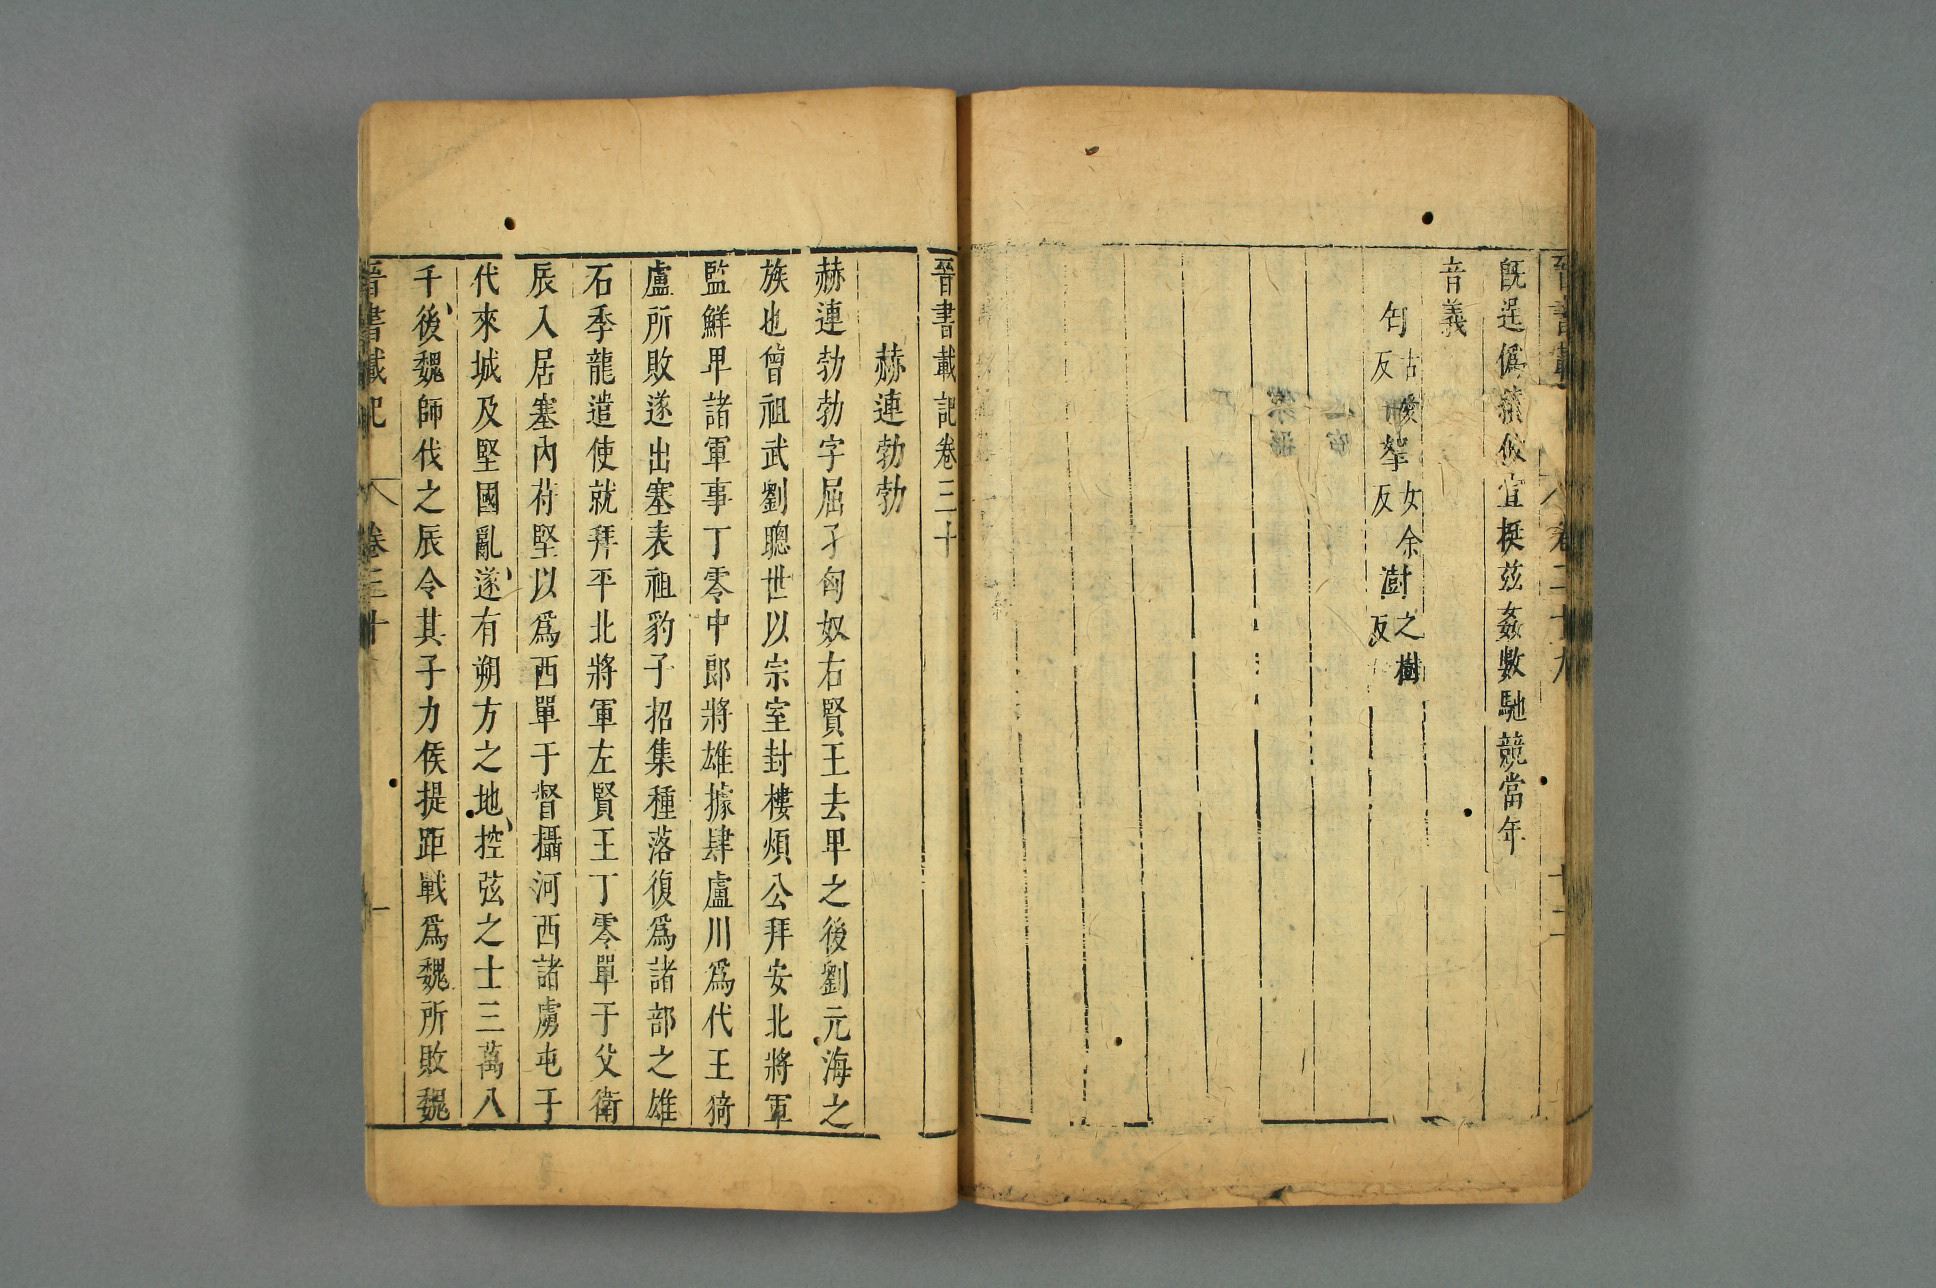 晉書載 卷二十九 十二
旣逞僞績攸宣梃茲姦數馳競當年
音義
匄 古曖反 拏 女余反 澍 之樹反
晉書載記卷三十
赫連勃勃
赫連勃勃字屈孑匈奴右賢王去卑之後劉元海之
族也曾祖武劉聰世以宗室封樓煩公拜安北將軍
監鮮卑諸軍事丁零中郎將雄據肆盧川爲代王猗
盧所敗遂出塞表祖豹子招集種落復爲諸部之雄
石季龍遣使就拜平北將軍左賢王丁零單于父衛
辰入居塞內苻堅以爲西單于督攝河西諸虜屯于
代來城及堅國亂遂有朔方之地控弦之士三萬八
千後魏師伐之辰令其子力俟提距戰爲魏所敗魏
晉書載記 卷三十 一